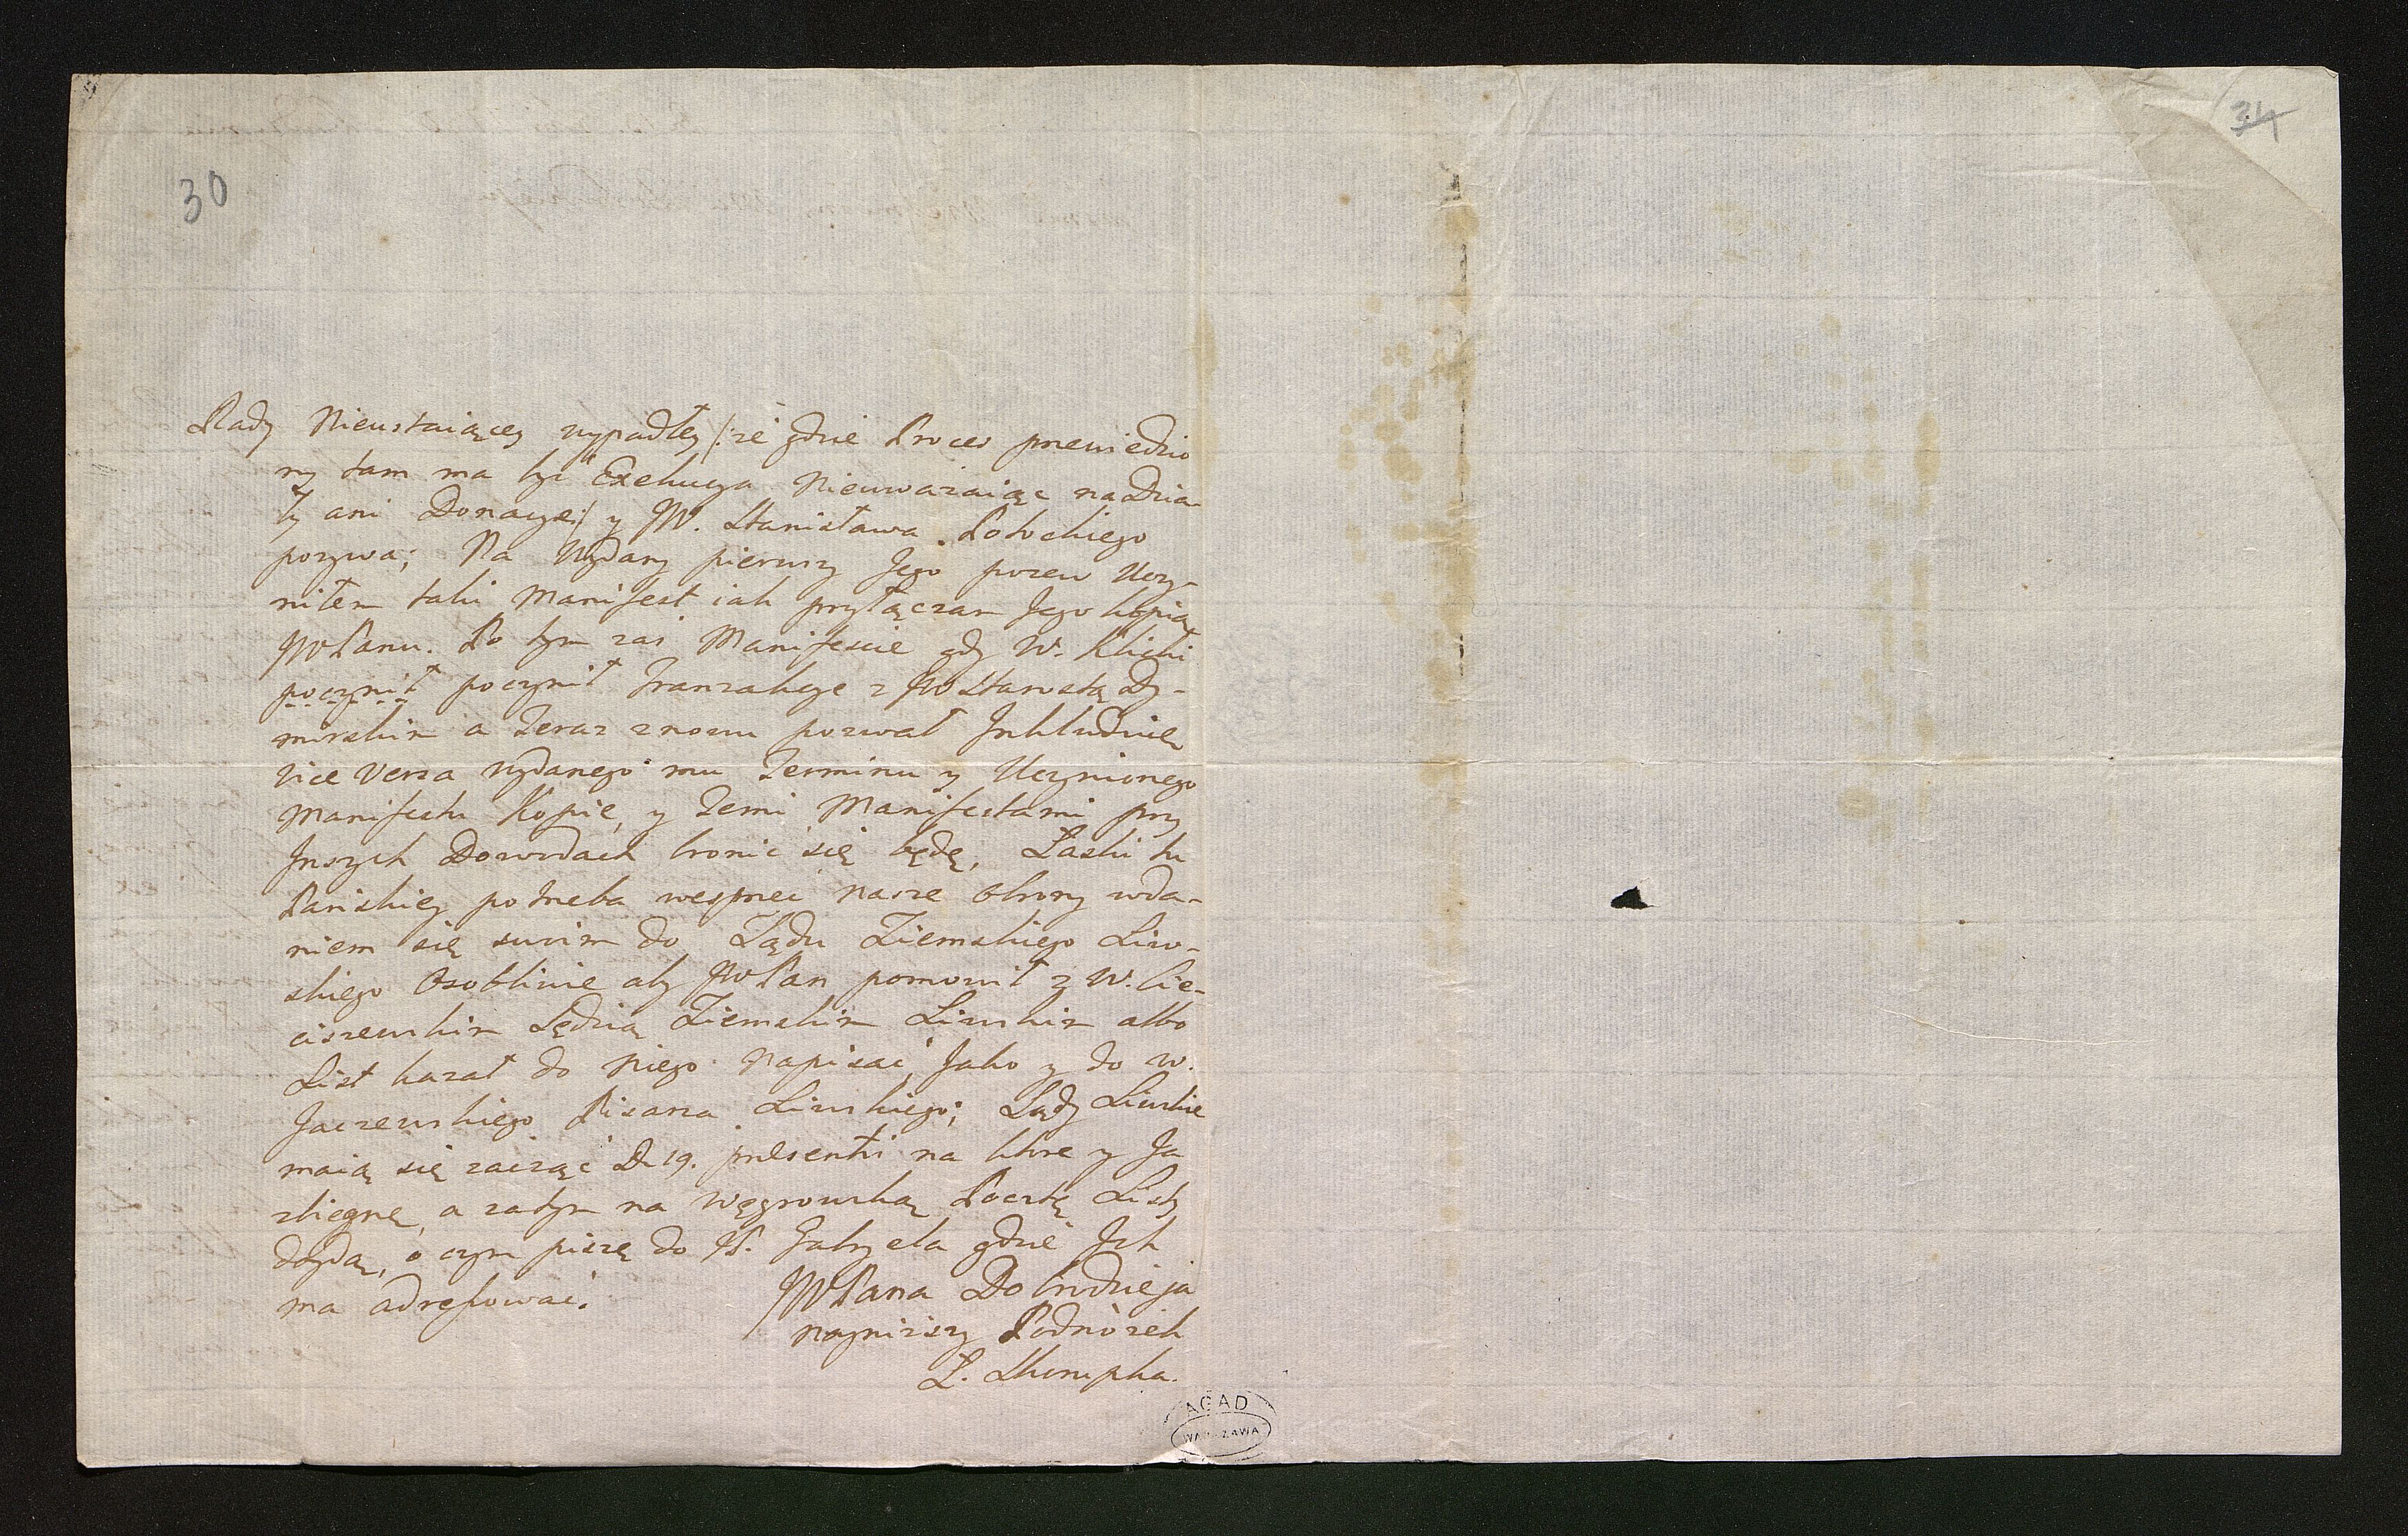 34
30
Rady Nieustaiącey wypadłey /: że gdzie Proces przewiedzio
ny tam ma być Exekucya nieuwazaiąc na Dzia-
ły ani Donacye :/ y JW. Stanisława Potockiego
pozywa; Na Wydany pierwszy Jego pozew Uczy-
niłem taki Manifest iak przyłączam Jego kopią
JWPanu. Po tym zaś Manifescie gdy W. Klicki
poczynił poczynił Tranzakcye z JW Starostą Dy-
mirskim a Teraz znowu pozwał Inkluduię
vice versa wydanego mu Terminu y Uczynionego
Manifestu Kopie, y Temi Manifestami przy
Inszych Dowodach bronić się będę, Łaski tu
Pańskiey potrzeba wesprzeć nasze obrony wda-
niem się swoim do Sądu Ziemskiego Liw-
skiego Osobliwie aby JWPan pomowił z W. Cie-
ciszewskim Sędzią Ziemskim Liwskim albo
List kazał do niego napisać, Jako y do W.
Jaczewskiego Pisarza Liwskiego; Sądy Liwskie
maią się zacząć D. 19. praesentis na ktore y Ja
zbiegnę, a zatym na Węgrowską Pocztę Listy
doydą, o czym piszę do JP. Gabryela gdzie Ich
ma adressować.
JWPana Dobrodzieja
nayniższy Podnóżek
Z. Skorupka.
AGAD
WARSZAWA